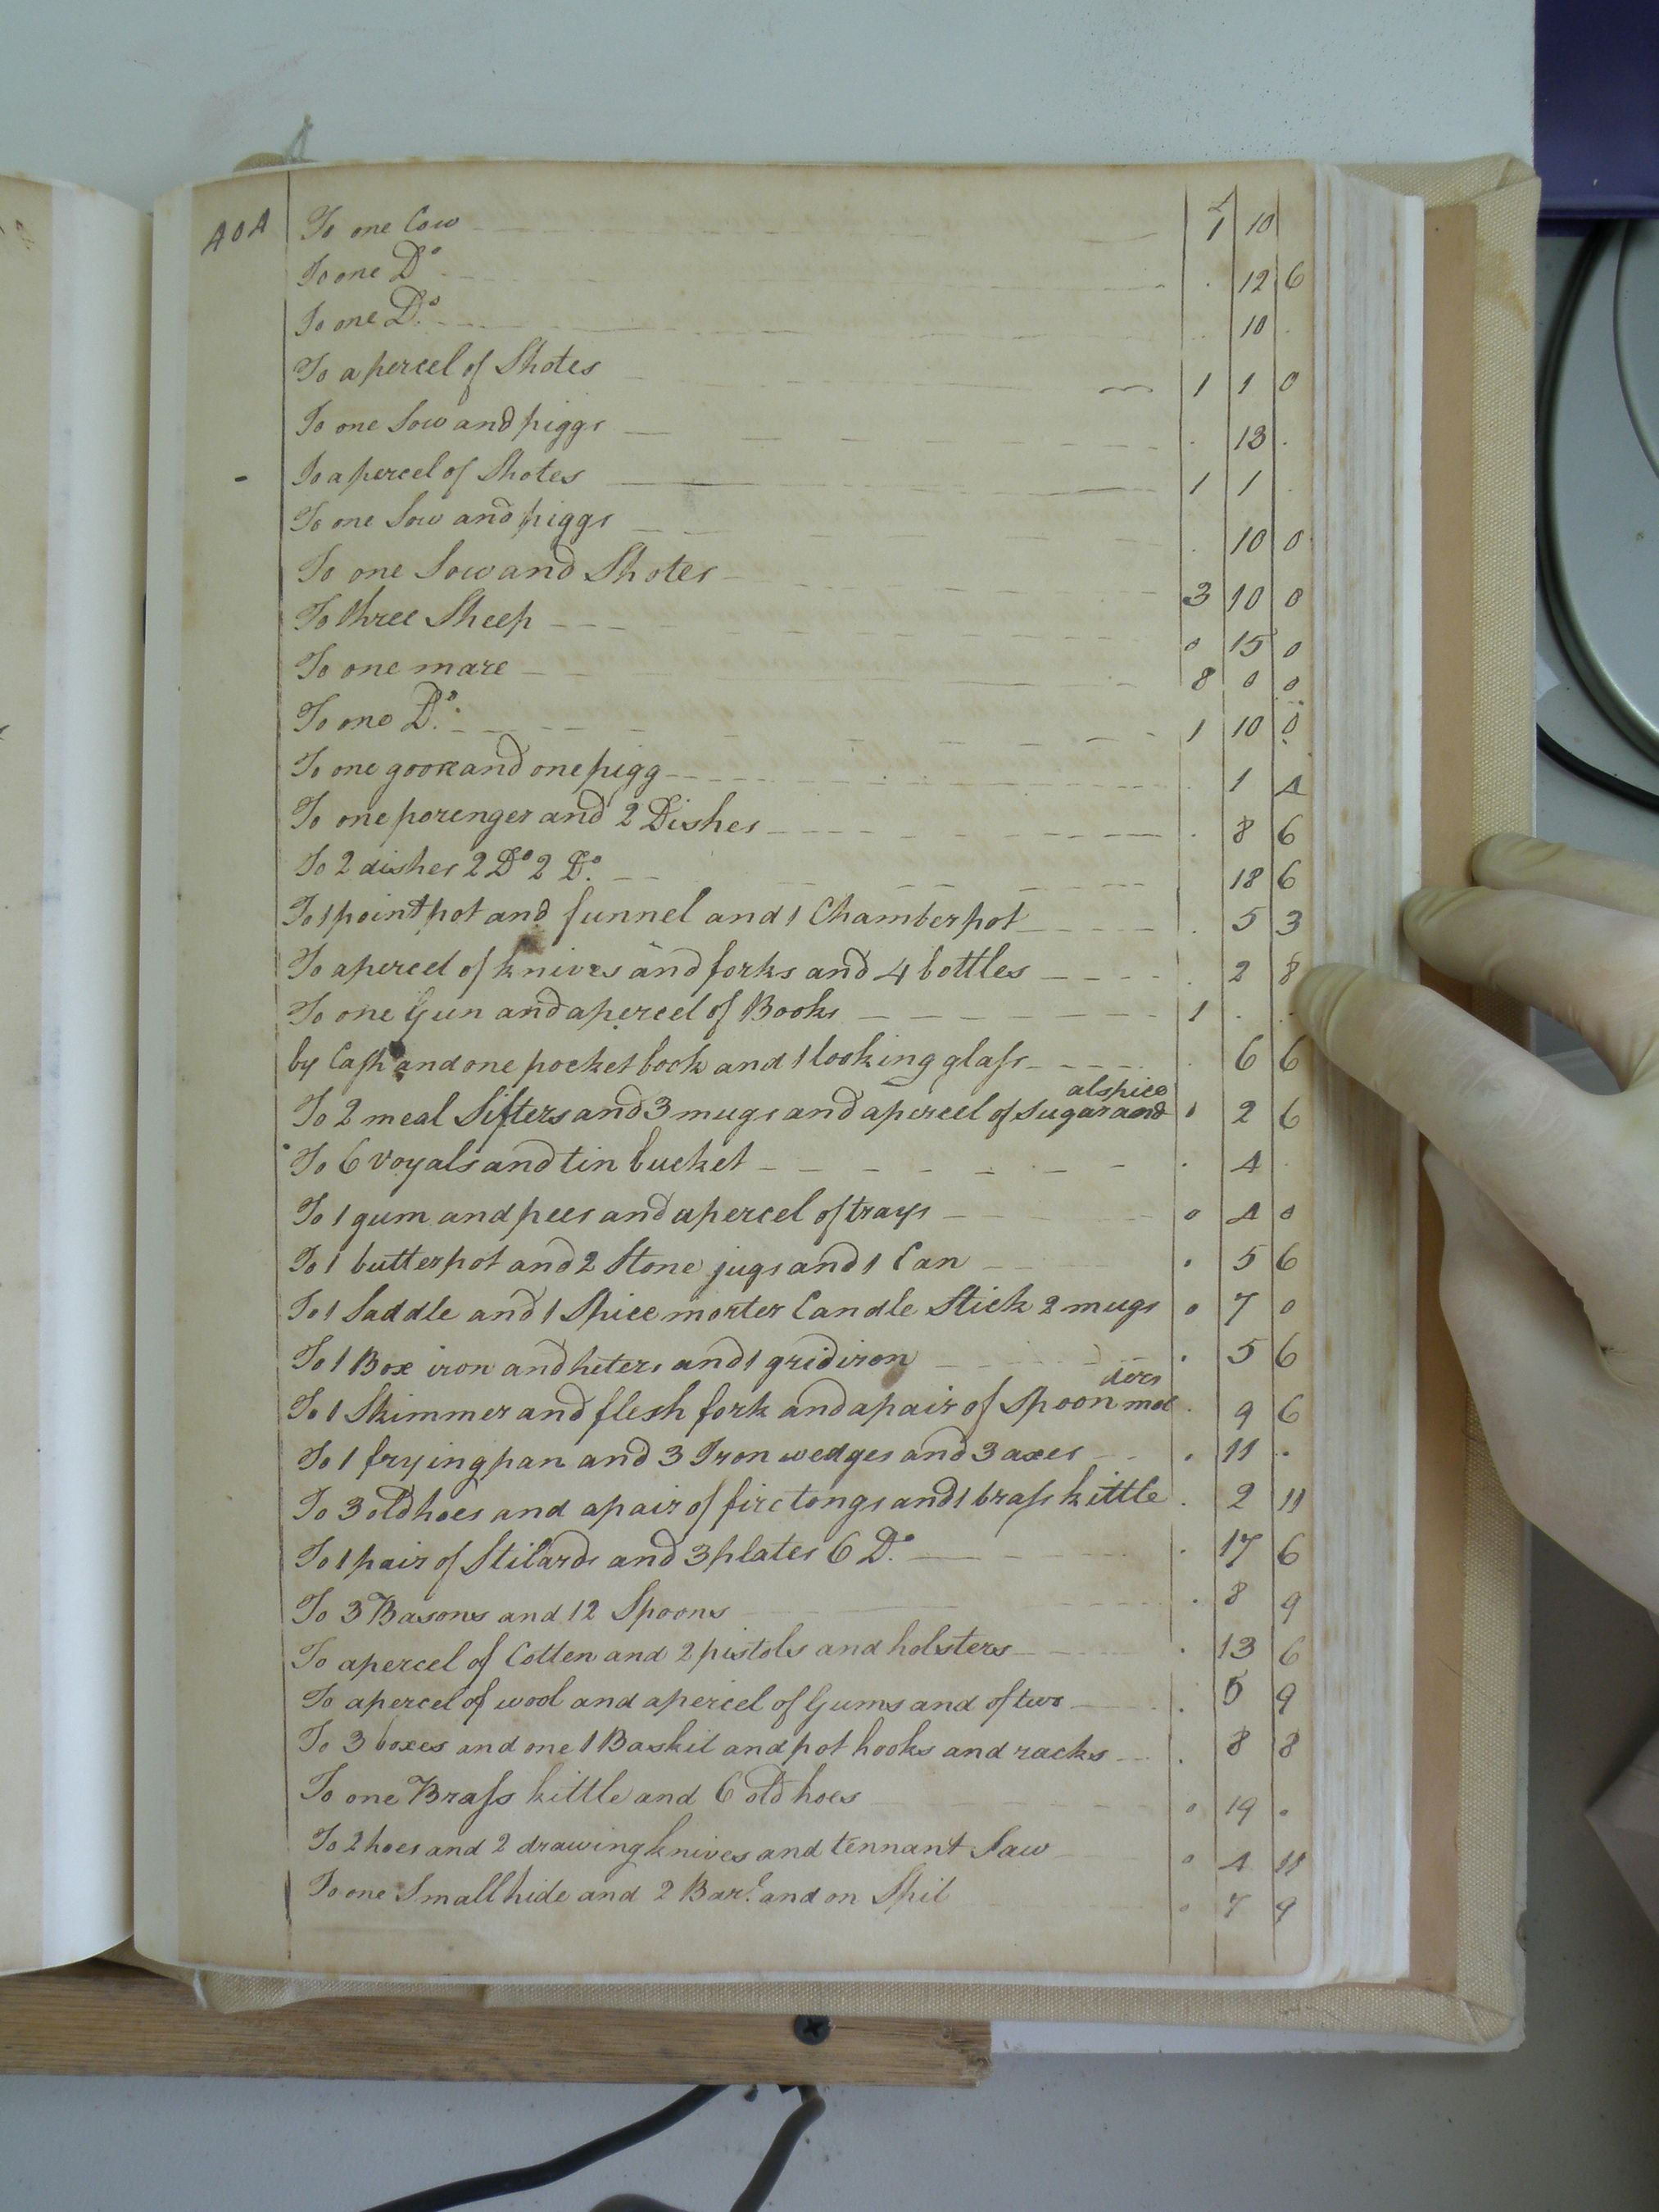 404 To one Cow 1 10
To one Do . 12 6
To one Do. . 10 .
To a percel of Shotes 1 1 0
To one Sow and piggs . 13 .
To a percel of Shotes 1 1 .
To one Sow and piggs . 10 0
To one Sow and Shotes 3 10 0
To three Sheep 0 15 0
To one mare 8 0 0
To one Do. 1 10 0
To one goose and one pigg . 1 4
To one porenger and 2 Dishes . 8 6
To 2 dishes 2 Do 2 Do. 18 6
To 1 point pot and funnel and 1 Chamber pot . 5 3
To a percel of knives and forks and 4 bottles . 2 8
To one Gun and a percel of Books 1 . .
by Cash and one pocket book and 1 looking glass . 6 6
alspice
To 2 meal Sifters and 3 mugs and a percel of Sugar and 0 2 6
To 6 voyals and tin bucket . 4
To 1 gum and pees and a percel of trays 0 4 0
To 1 butter pot and 2 Stone jugs and 1 Can . 5 6
To 1 Saddle and 1 Spice morter Candle Stick 2 mugs 0 7 0
To 1 Box iron and heters and 1 gridiron . 5 6
ders
To 1 Skimmer and flesh fork and a pair of Spoon mol . 9 6
To 1 frying pan and 3 Iron wedges and 3 axes . 11 .
To 3 old hoes and a pair of fire tongs and 1 brass kittle . 2 11
To 1 pair of Stilards and 3 plates 6 Do. . 17 6
To 3 Basons and 12 Spoons . 8 9
To a percel of Cotten and 2 pistols and holsters . 13 6
To a percel of wool and a percel of Gums and of two . 5 9
To 3 boxes and one 1 Baskit and pot hooks and racks . 8 8
To one Brass kittle and 6 old hoes 0 19 .
To 2 hoes and 2 drawing knives and tennant Saw 0 4 11
To one Small hide and 2 Barl. and on Spil 0 7 9